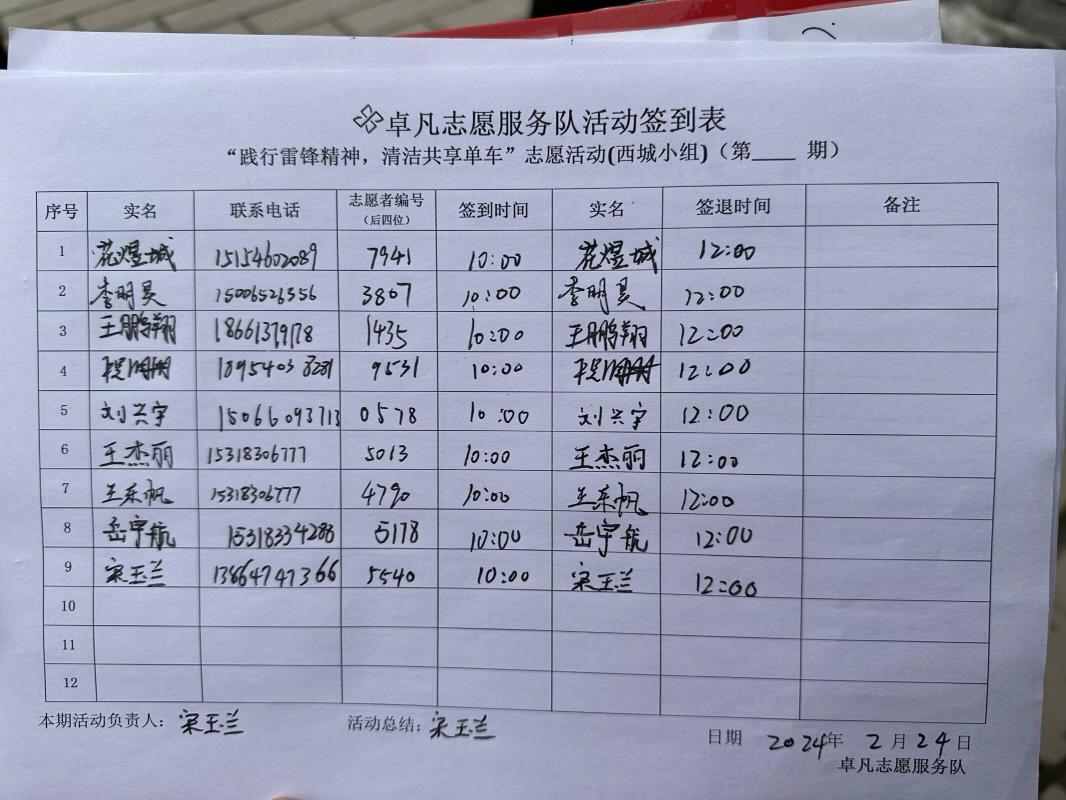 卓凡志愿服务队活动签到表
“践行雷锋精神，清洁共享单车”志愿活动(西城小组)（第____ 期）
序号 实名 联系电话 志愿者编号（后四位） 签到时间 实名 签退时间 备注
1 花煜城 15154602089 7941 10:00 花煜城 12:00
2 李明昊 15006526356 3807 10:00 李明昊 12:00
3 王鹏翔 18661379178 1435 10:00 王鹏翔 12:00
4 9531 10:00 12:00
5 刘兴宇 15066093713 0578 10:00 刘兴宇 12:00
6 王杰丽 15318306777 5013 10:00 王杰丽 12:00
7 王东帆 15318306777 4790 10:00 王东帆 12:00
8 岳宇航 15318334288 5178 10:00 岳宇航 12:00
9 宋玉兰 13864747366 5540 10:00 宋玉兰 12:00
10
11
12
本期活动负责人：宋玉兰 活动总结：宋玉兰
日期 2024年 2月24日
卓凡志愿服务队